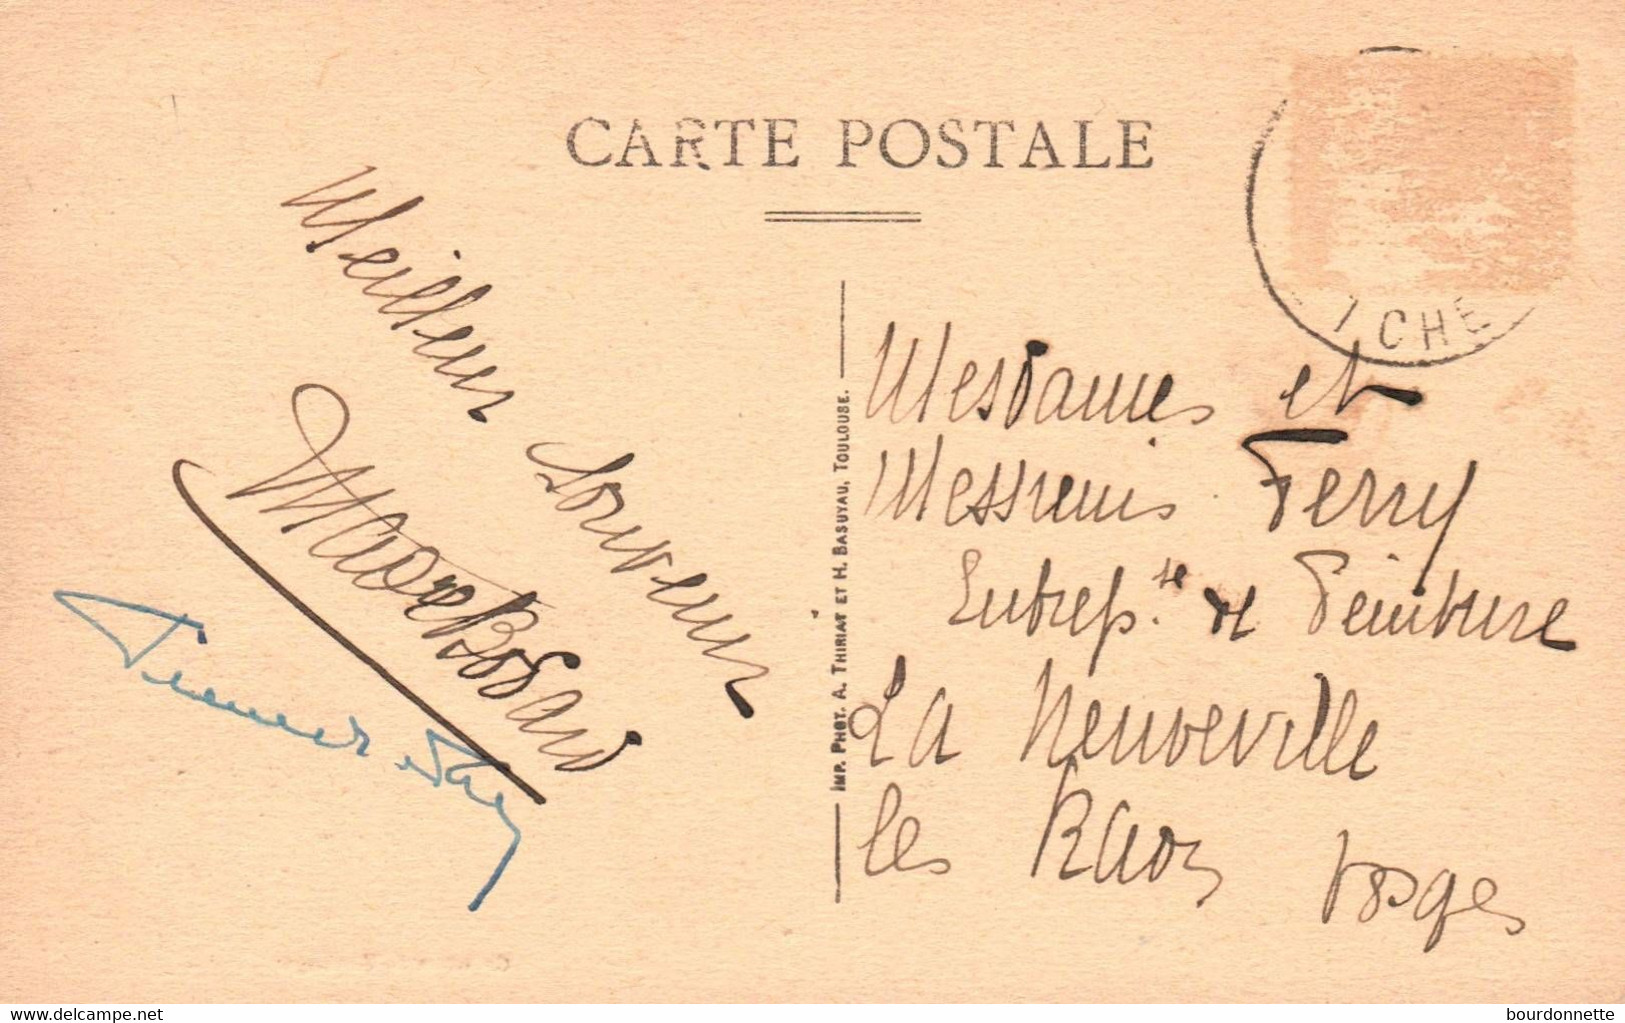 CARTE POSTALE
ICHE
Meilleur souvenir
IMP. PHOT. A. THIRIAT ET H. BASUYAU, TOULOUSE.
Mesdames et
Messieurs Ferry
Entrep.se de Peinture
La Neuveville
les Raon Vosges
delcampe.net
bourdonnette